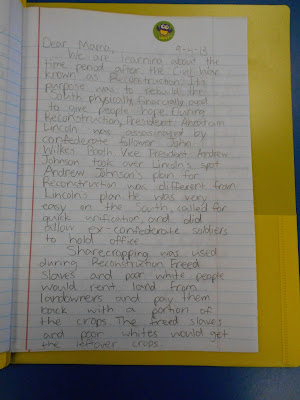 Dear Mama, 9-4-13
We are learning about the
time period after the Civil War
known as Reconstruction. Its
purpose was to rebuild the
South physically, financially, and
to give people hope. During
Reconstruction, President Abraham
Lincoln was assassinated by
confederate follower John
Wilkes Booth. Vice President Andrew
Johnson took over Lincoln's spot.
Andrew Johnson's plan for
Reconstruction was different from
Lincoln's plan. He was very
easy on the South, called for
quick unification, and did
allow ex-confederate soldiers
to hold office.
Sharecropping was used
during Reconstruction. Freed
slaves and poor white people
would rent land from
landowners and pay them
back with a portion of
the crops. The freed slaves
and poor whites would get
the leftover crops.